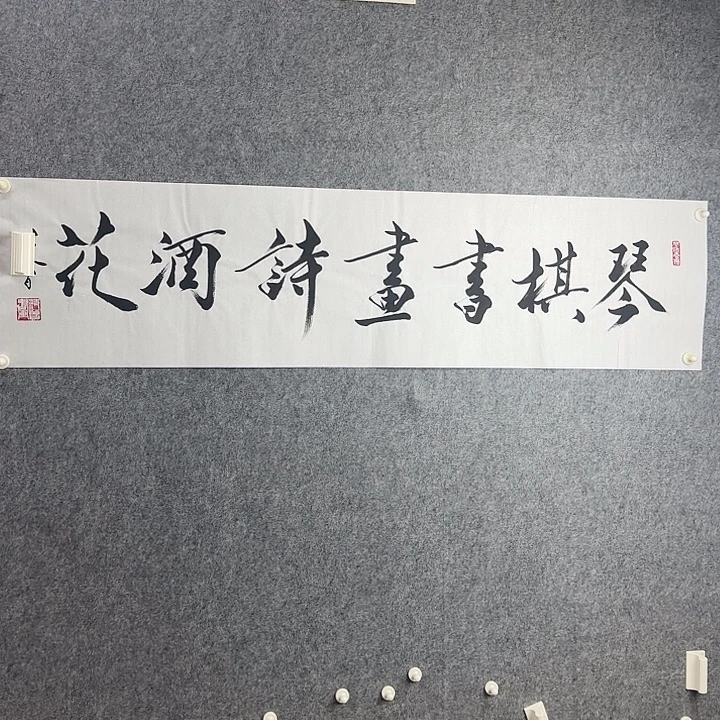 琴棋書畫詩酒花